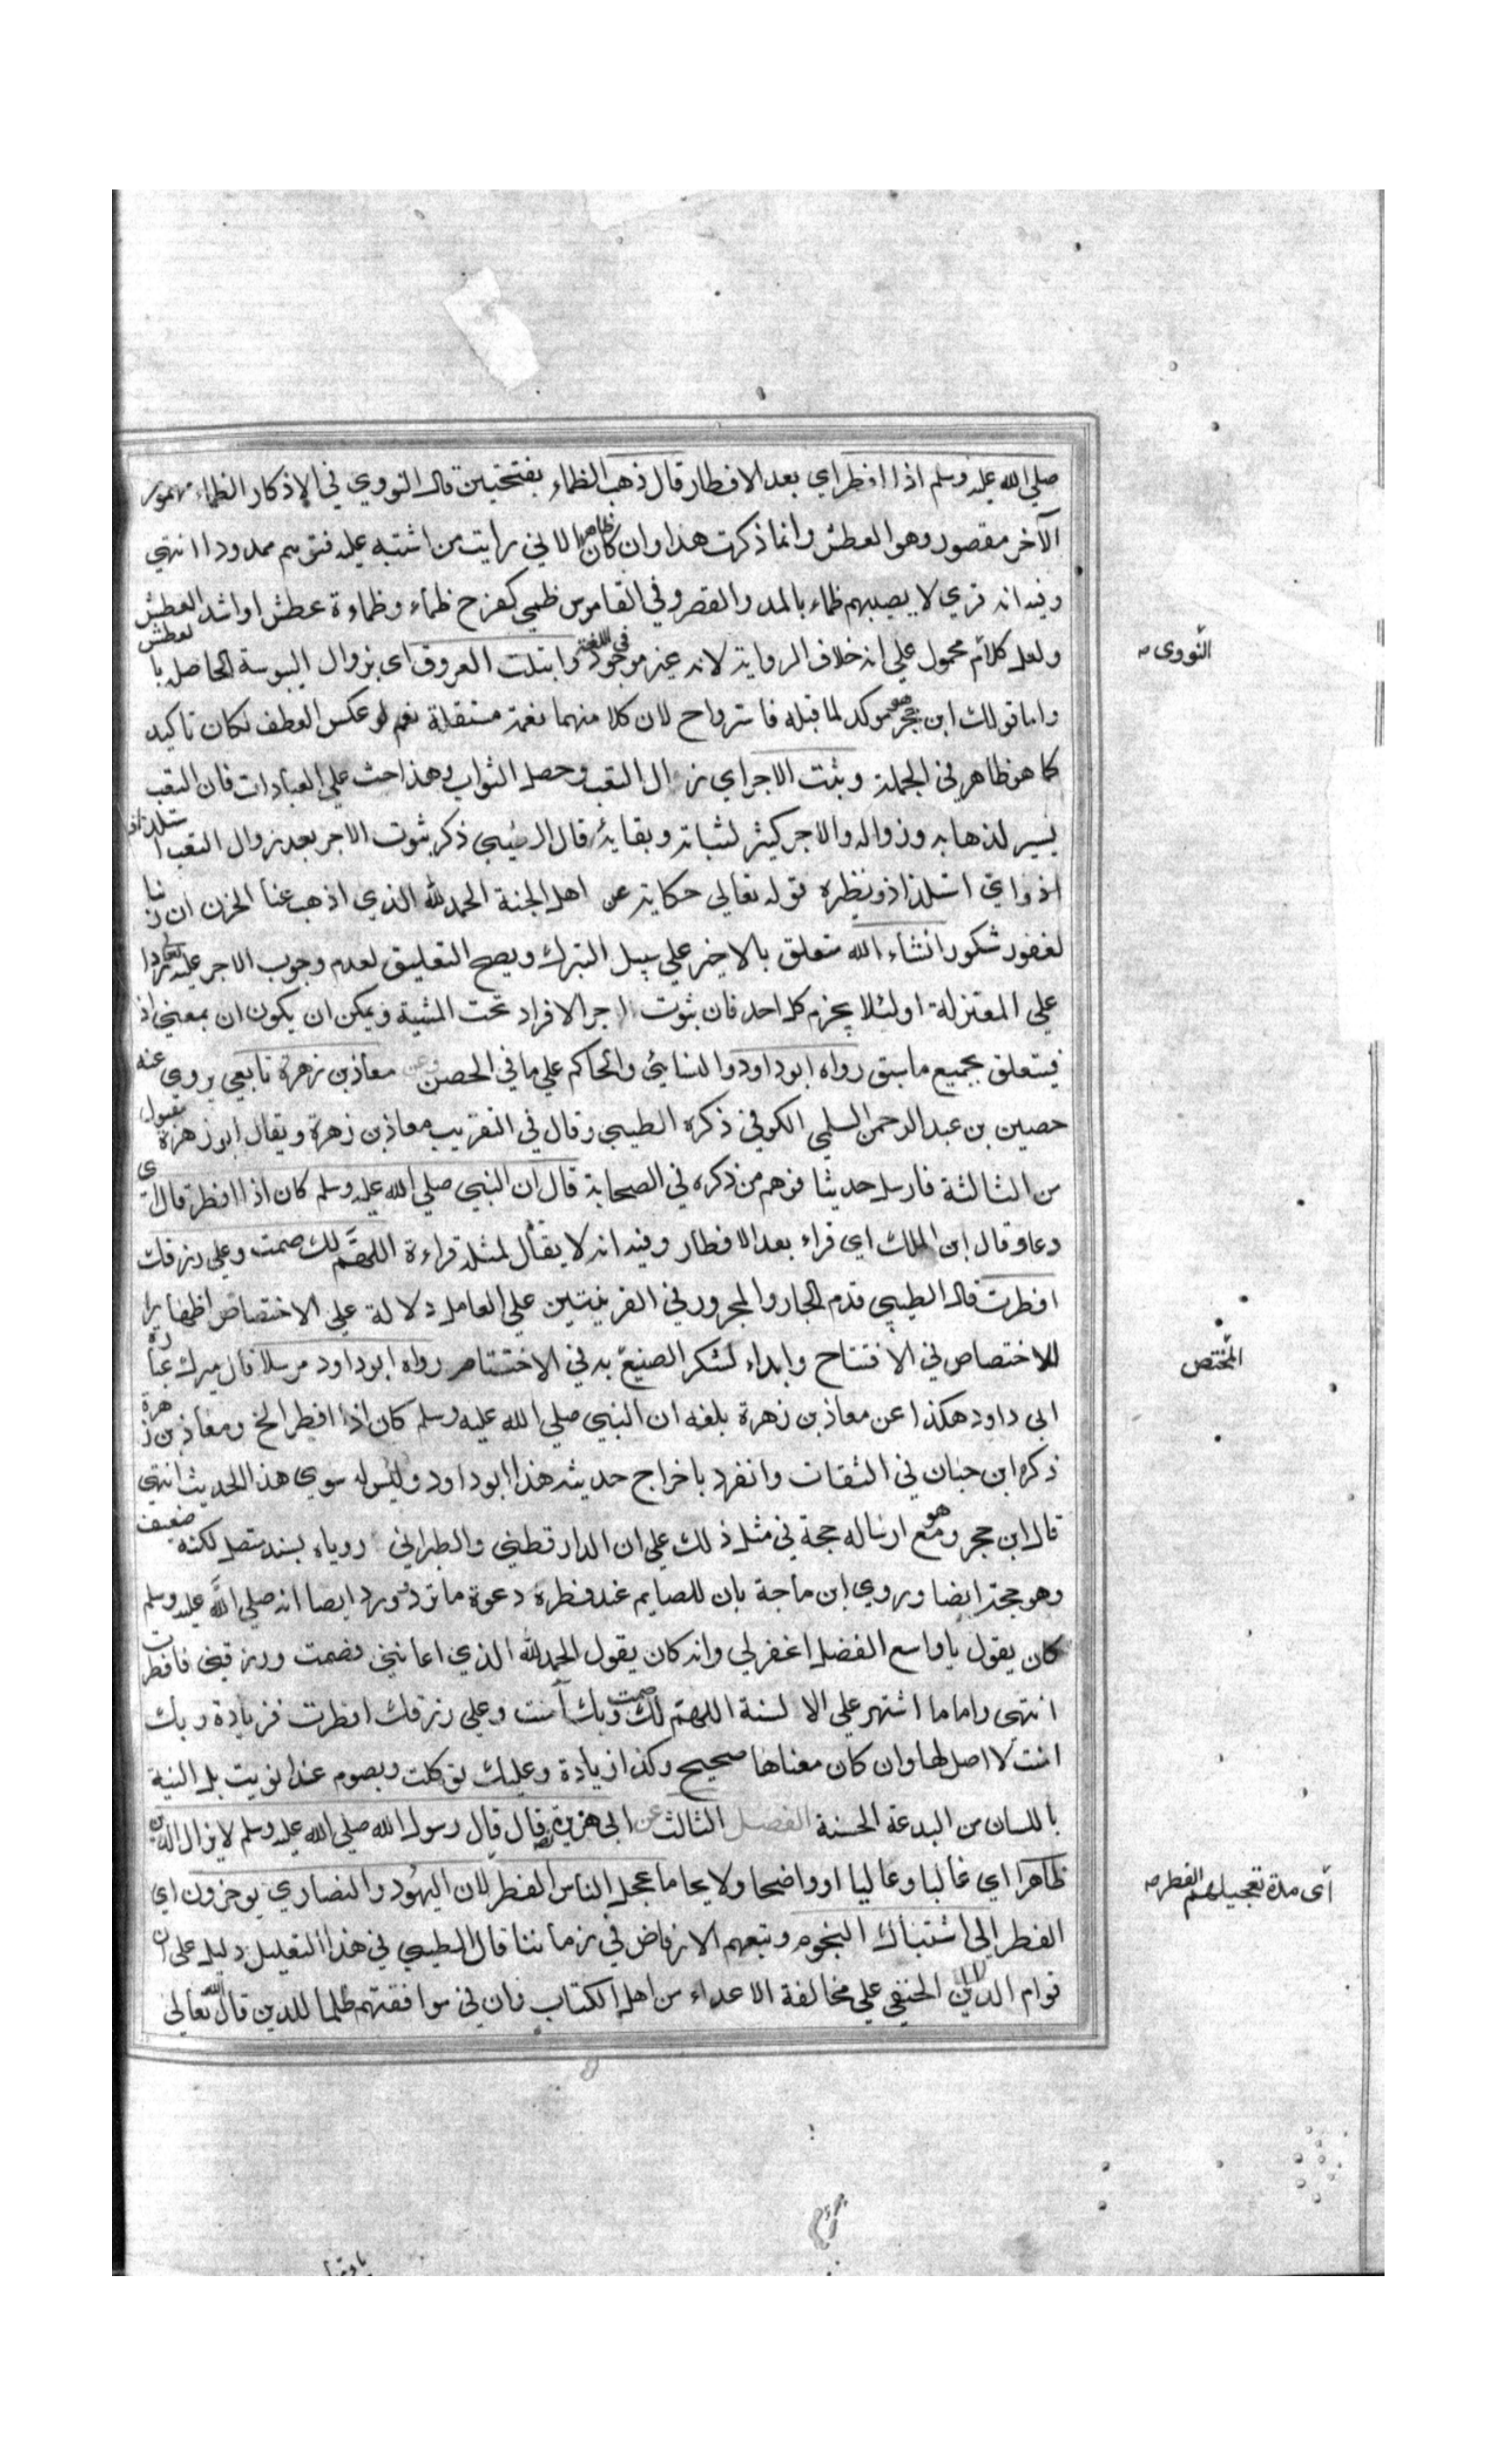 صلي الله عليه وسلم اذا افطر اي بعد الافطار قال ذهب الظماء بفتحتين قال النووي في الاذكار الظماء مهموز
الآخر مقصور وهو العطش وانما ذكرت هذا وان كان ظاهرا لاني رايت من اشتبه عليه فتوهم ممدودا انتهي
وفيه انه قري لا يصيبهم ظماء بالمد والقصر وفي القاموس ظمي كفرح ظماء وظماءة عطش او اشد العطش
ولعل كلام محمول علي انه خلاف الرواية لانه غير موجود في اللغة وابتلت العروق اي بزوال اليبوسة الحاصلة بالعطش
النووى صح
واما قول ابن حجر هو موكد لما قبله فاسترواح لان كلا منهما نعمة مستقلة نعم لو عكس العطف لكان تاكيد
كما هو ظاهر في الجملة وثبت الاجر اي زال التعب وحصل الثواب وهذا حث علي العبادات فان التعب
يسير لذهابه وزواله والاجر كثير لثباته وبقايه قال الطيبي ذكر ثبوت الاجر بعد زوال التعب استلذاذا
اي استلذاذ ونظيره قوله تعالي حكاية عن اهل الجنة الحمد لله الذي اذهب عنا الحزن ان ربنا
لغفور شكور انشاء الله متعلق بالاخير علي سبيل التبرك ويصح التعليق لعدم وجوب الاجر عليه تعالي ردا
علي المعتزلة او لئلا يجزم كل احد فان ثبوت اجر الافراد تحت المشية ويمكن ان يكون ان بمعني اذ
فيتعلق بجميع ما سبق رواه ابو داود والنسايي والحاكم علي ما في الحصن وعن معاذ بن زهرة تابعي يروى عنه
حصين بن عبد الرحمن السلمي الكوفي ذكره الطيبي وقال في التقريب معاذ بن زهرة ويقال ابو زهرة مقبول
من الثالثة فارسل حديثا فوهم من ذكره في الصحابة قال ان النبي صلي الله عليه وسلم كان اذا افطر قال اى
دعا وقال ابن الملك اي قراء بعد الافطار وفيه انه لا يقال لمثله قراءة اللهم لك صمت وعلي رزقك
افطرت قال الطيبي قدم الجار والمجرور في القرينتين علي العامل دلالة علي الاختصاص اظهارا
للاختصاص في الافتتاح وابداء لشكر الصنيع به في الاختتام رواه ابو داود مرسلا قال ميرك عبارة
المختص
ابي داود هكذا عن معاذ بن زهرة بلغه ان النبي صلي الله عليه وسلم كان اذا افطر الخ ومعاذ بن زهرة
ذكره ابن حبان في الثقات وانفرد باخراج حديثه هذا ابو داود وليس له سوي هذا الحديث انتهي
قال ابن حجر وهو مع ارساله حجة في مثل ذلك علي ان الدارقطني والطبراني روياه بسند متصل لكنه ضعيف
وهو حجة ايضا وروي ابن ماجة بان للصايم عند فطره دعوة ما ترد وورد ايضا انه صلي الله عليه وسلم
كان يقول يا واسع الفضل اغفر لي وانه كان يقول الحمد لله الذي اعانني فصمت ورزقني فافطرت
انتهي واما ما اشتهر علي الالسنة اللهم لك صمت وبك آمنت وعلي رزقك افطرت فزيادة وبك
امنت لا اصل لها وان كان معناها صحيح وكذا زيادة وعليك توكلت وبصوم غدا نويت بل النية
باللسان من البدعة الحسنة الفصل الثالث عن ابي هريرة قال قال رسول الله صلي الله عليه وسلم لا يزال الدين
ظاهرا اي غالبا وعاليا او واضحا ولايحا ما عجل الناس الفطر لان اليهود والنصاري يوخرون اي
أى مدة تعجيلهم الفطر صح
الفطر الي اشتباك النجوم وتبعهم الارفاض في زماننا قال الطيبي في هذا التعليل دليل علي ان
قوام الدين الحنفي علي مخالفة الاعداء من اهل الكتاب وان في موافقتهم ظلما للدين قال الله تعالي